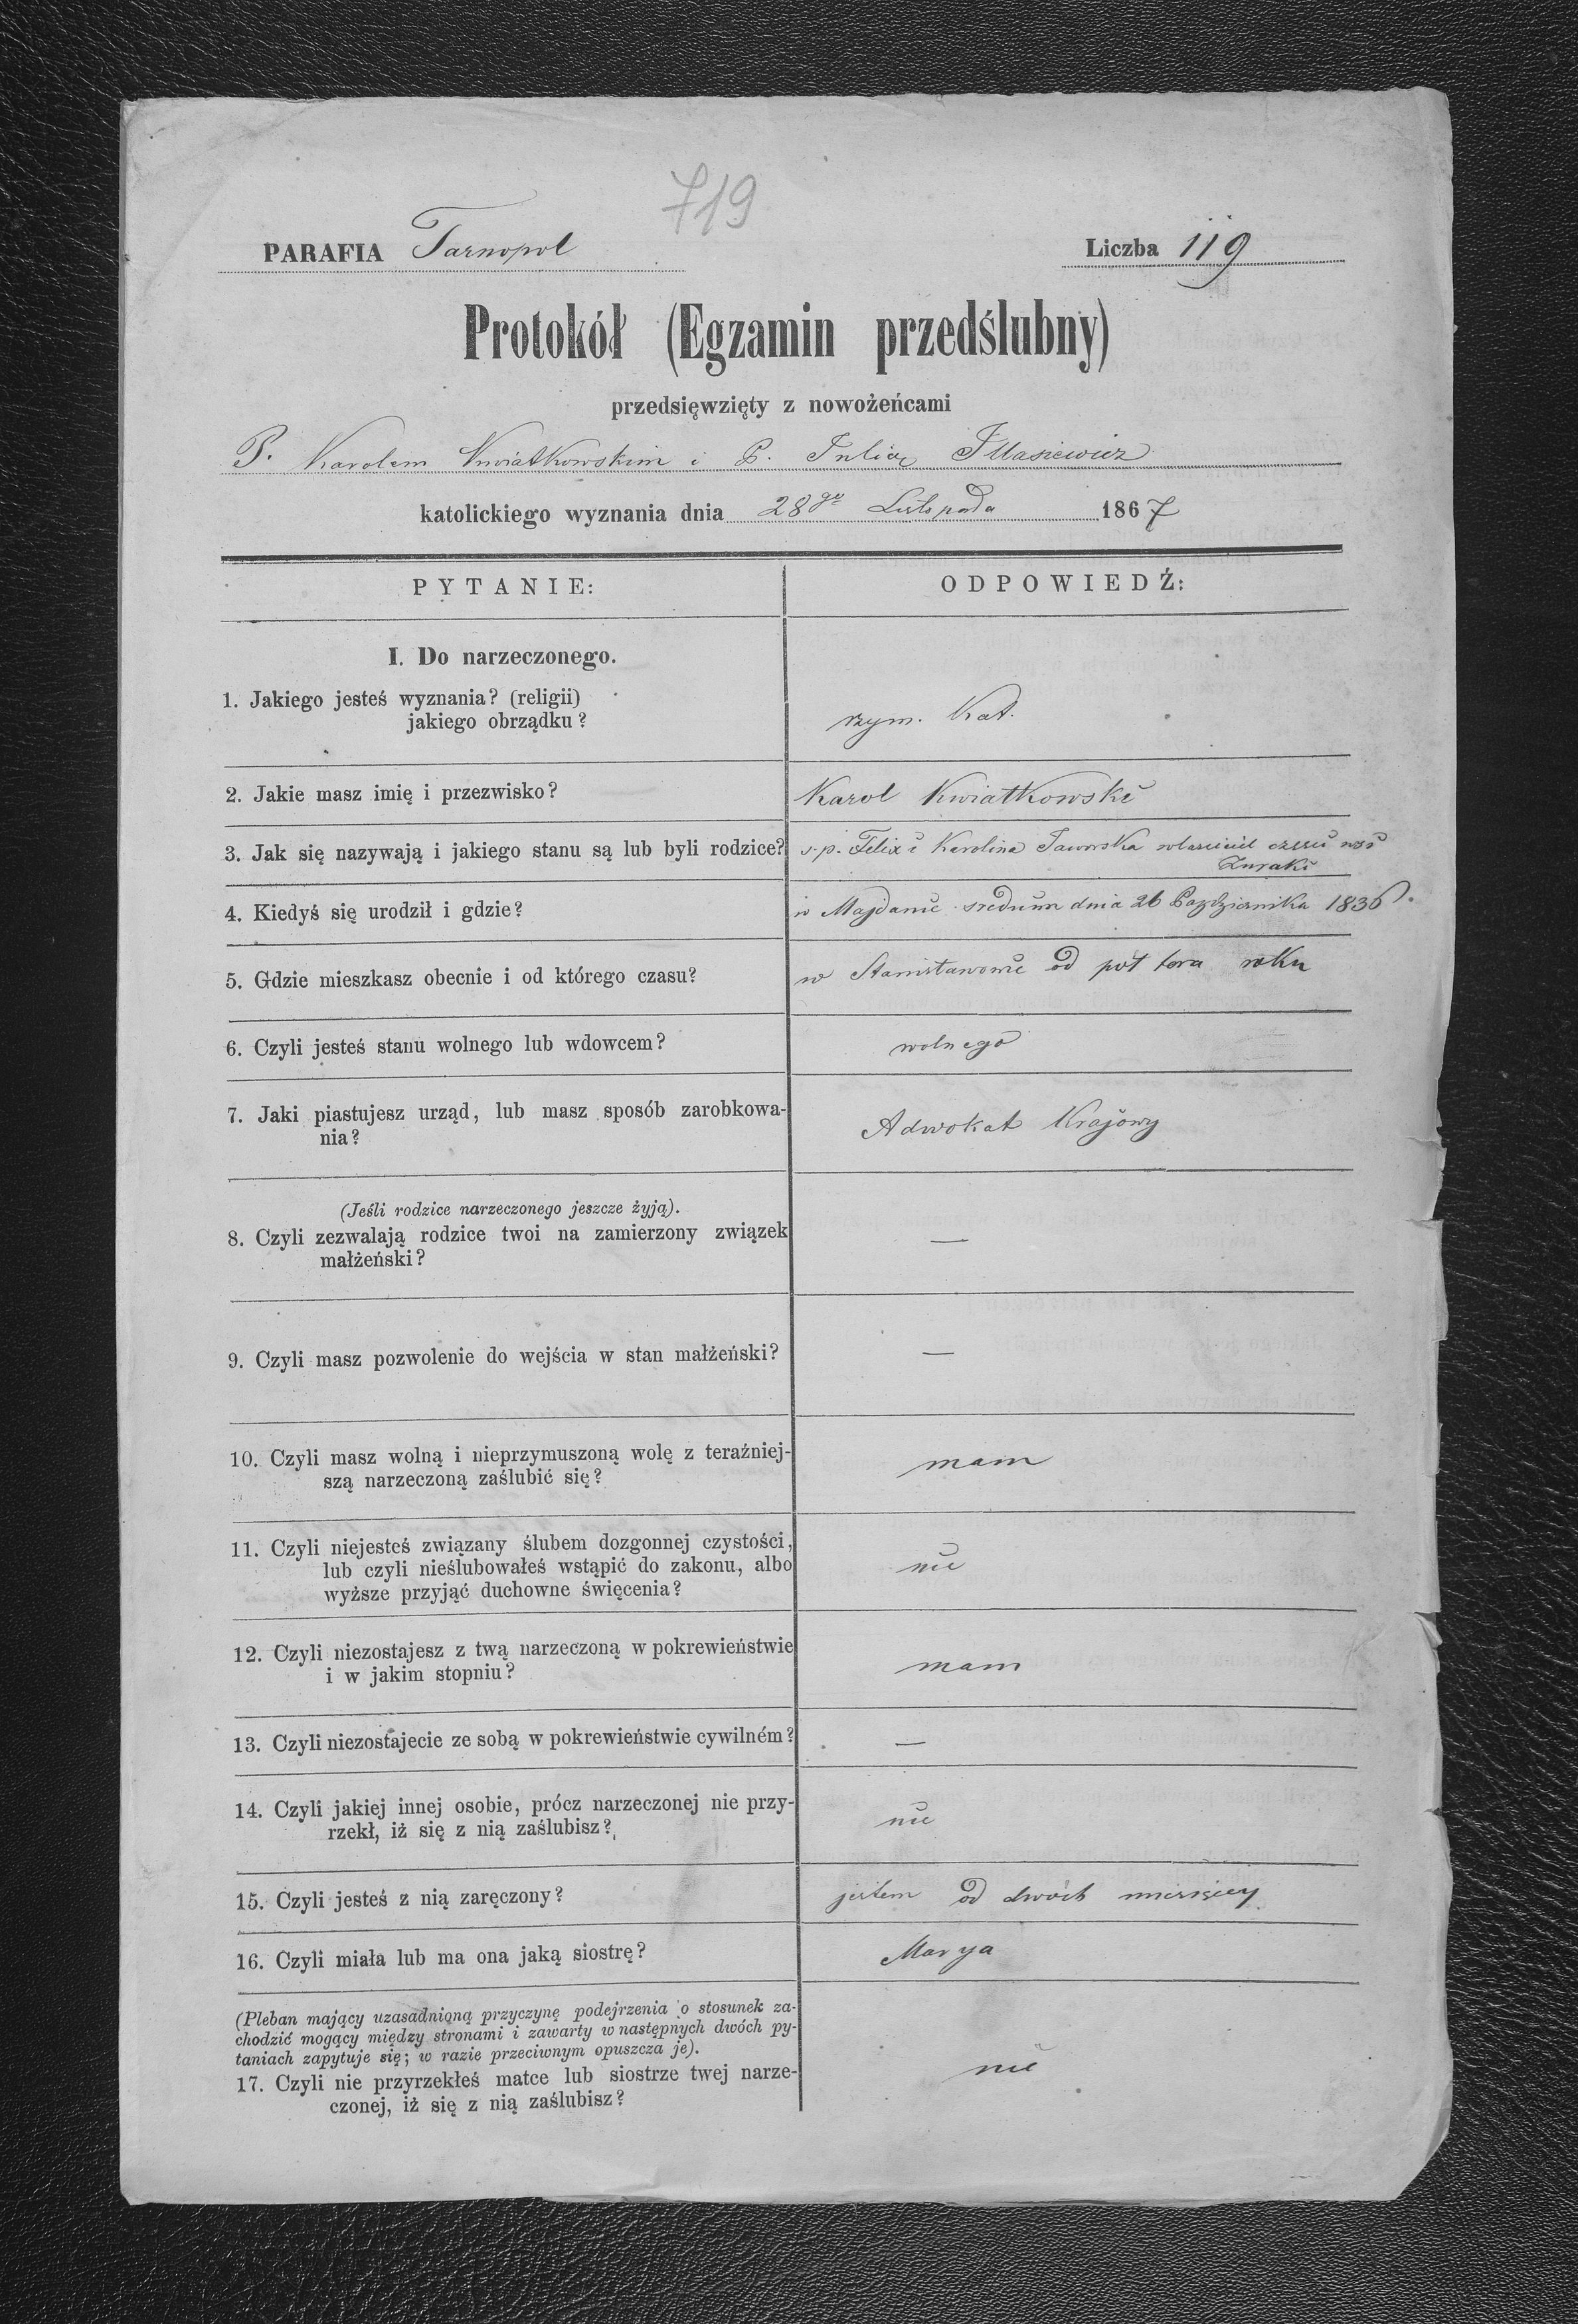 719
PARAFIA Tarnopol Liczba 119
Protokół (Egzamin przedślubny)
przedsięwzięty z nowożeńcami
P. Karolem Kwiatkowskim i P. Julią Illasiewicz
katolickiego wyznania dnia 28go Listopada 1867
PYTANIE: ODPOWIEDŹ:
I. Do narzeczonego.
1. Jakiego jesteś wyznania? (religii)
jakiego obrządku?
rzym. Kat.
2. Jakie masz imię i przezwisko? Karol Kwiatkowski
3. Jak się nazywają i jakiego stanu są lub byli rodzice? s.p. Felix i Karolina Jaworska własciciel części wsi
Żuraki
4. Kiedyś się urodził i gdzie? w Majdanie srednim dnia 26 Października 1836
5. Gdzie mieszkasz obecnie i od którego czasu? w Stanisławowie od pół tora roku
6. Czyli jesteś stanu wolnego lub wdowcem? wolnego
7. Jaki piastujesz urząd, lub masz sposób zarobkowa-
nia?
Adwokat Krajowy
(Jeśli rodzice narzeczonego jeszcze żyją).
8. Czyli zezwalają rodzice twoi na zamierzony związek —
małżeński?
9. Czyli masz pozwolenie do wejścia w stan małżeński? —
10. Czyli masz wolną i nieprzymuszoną wolę z teraźniej- mam
szą narzeczoną zaślubić się?
11. Czyli niejesteś związany ślubem dozgonnej czystości,
lub czyli nieślubowałeś wstąpić do zakonu, albo nie
wyższe przyjąć duchowne święcenia?
12. Czyli niezostajesz z twą narzeczoną w pokrewieństwie
i w jakim stopniu? mam
13. Czyli niezostajecie ze sobą w pokrewieństwie cywilném? —
14. Czyli jakiej innej osobie, prócz narzeczonej nie przy-
rzekł, iż się z nią zaślubisz? nie
15. Czyli jesteś z nią zaręczony? jestem od dwóch miesięcy
16. Czyli miała lub ma ona jaką siostrę? Marya
(Pleban mający uzasadnioną przyczynę podejrzenia o stosunek za-
chodzić mogący między stronami i zawarty w następnych dwóch py-
taniach zapytuje się; w razie przeciwnym opuszcza je).
17. Czyli nie przyrzekłeś matce lub siostrze twej narze- nie
czonej, iż się z nią zaślubisz?